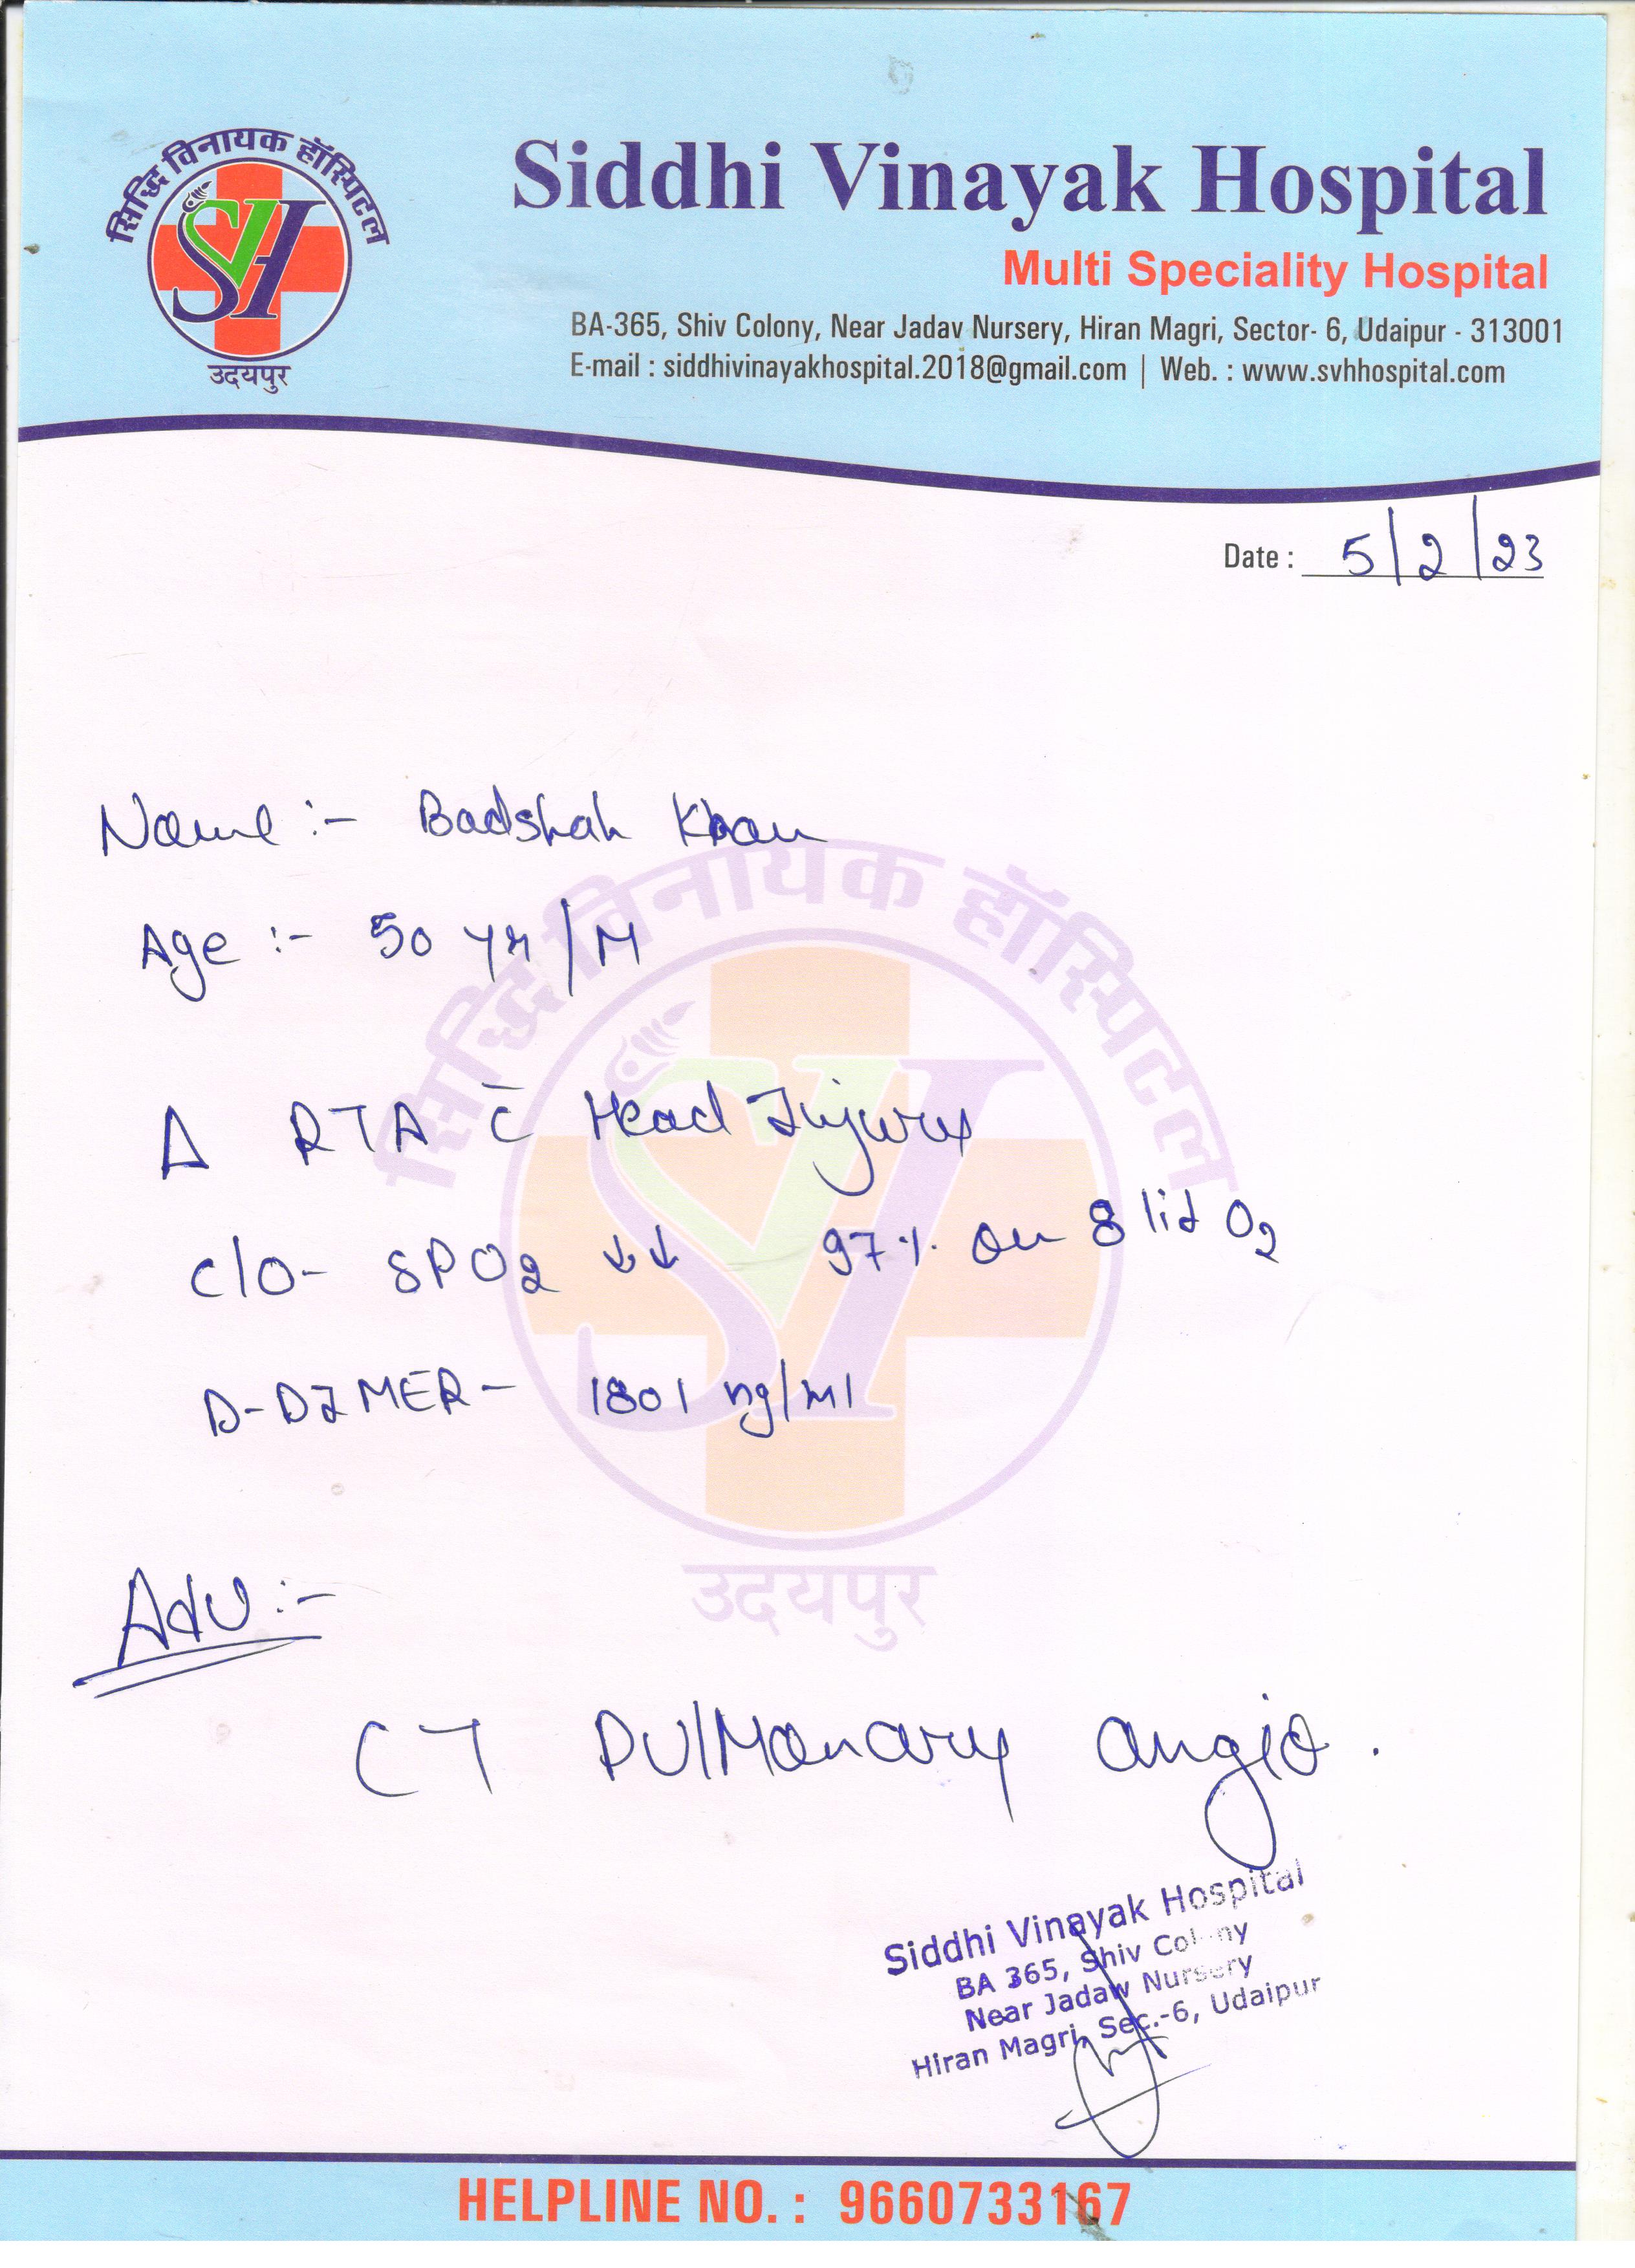 सिद्धि विनायक हॉस्पिटल
SVH
उदयपुर
Siddhi Vinayak Hospital
Multi Speciality Hospital
BA-365, Shiv Colony, Near Jadav Nursery, Hiran Magri, Sector- 6, Udaipur - 313001
E-mail : siddhivinayakhospital.2018@gmail.com | Web. : www.svhhospital.com
Date : 5/2/23
Name :- Badshah Khan
Age :- 50 yr/M
सिद्धि विनायक हॉस्पिटल
SVH
उदयपुर
Δ RTA c̄ Head Injury
C/O- SPO2 ↓↓ 97% on 8 lit O2
D-DIMER- 1801 ng/ml
Adv :-
CT PulMonary angio.
Siddhi Vinayak Hospital
BA 365, Shiv Colony
Near Jadaw Nursery
Hiran Magri, Sec.-6, Udaipur
HELPLINE NO. : 9660733167